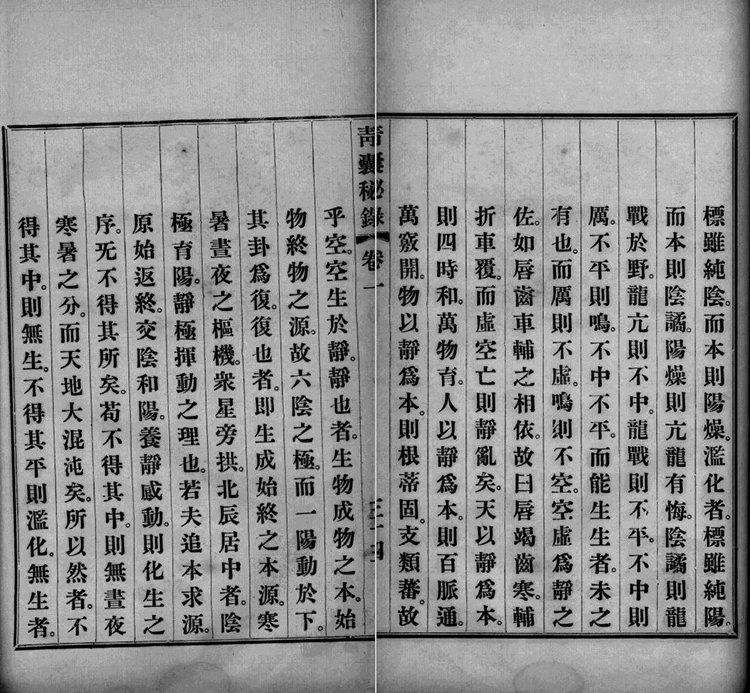 標雖純陰。而本則陽燥。濫化者。標雖純陽。
而本則陰譎。陽燥則亢龍有悔。陰譎則龍
戰於野。龍亢則不中。龍戰則不平。不中則
厲。不平則鳴。不中不平。而能生生者。未之
有也。而厲則不虛。鳴則不空。空虛爲靜之
佐。如唇齒車輔之相依。故曰唇竭齒寒。輔
折車覆。而虛空亡則靜亂矣。天以靜爲本。
則四時和。萬物育。人以靜爲本。則百脈通。
萬竅開。物以靜爲本。則根蒂固。支類蕃。故
青囊秘錄 卷一 三十四
乎空。空生於靜。靜也者。生物成物之本。始
物終物之源。故六陰之極。而一陽動於下。
其卦爲復。復也者。即生成始終之本源。寒
暑晝夜之樞機。衆星旁拱。北辰居中者。陰
極育陽。靜極揮動之理也。若夫追本求源。
原始返終。交陰和陽。養靜感動。則化生之
序。旡不得其所矣。苟不得其中。則無晝夜
寒暑之分。而天地大混沌矣。所以然者。不
得其中。則無生。不得其平則濫化。無生者。